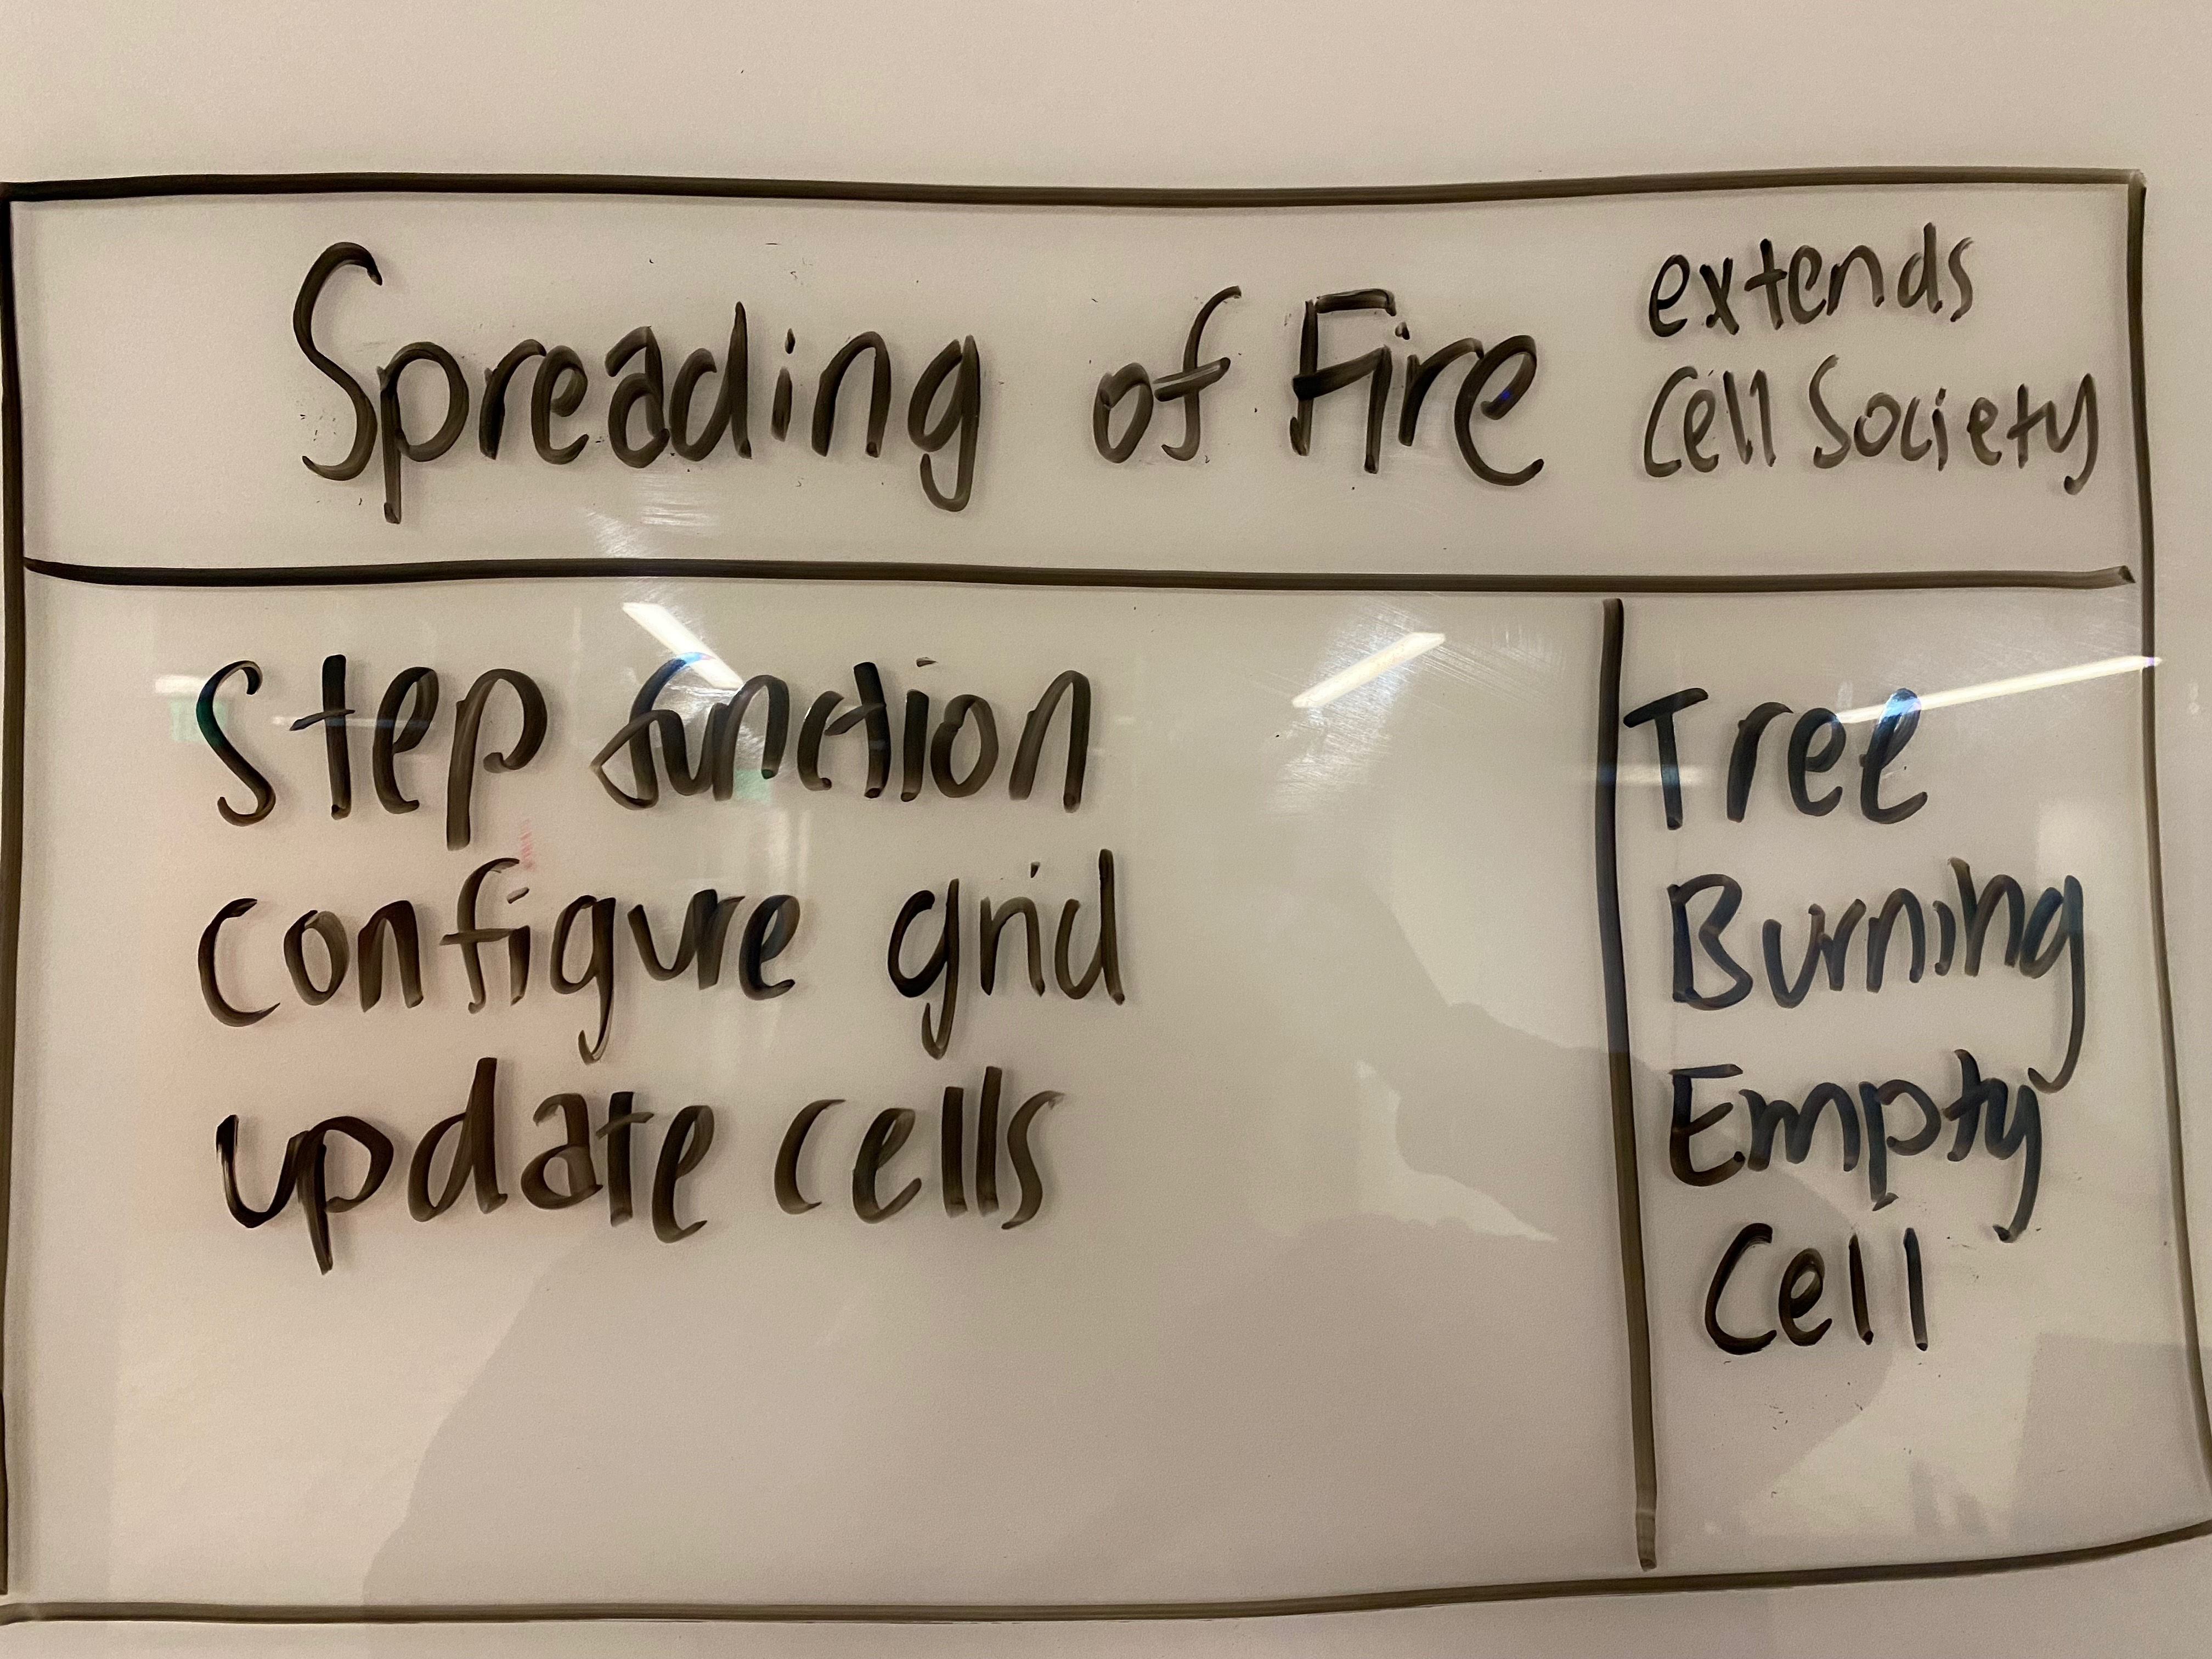 Spreading of Fire
extends
Cell Society
Step function
configure grid
update cells
Tree
Burning
Empty
Cell